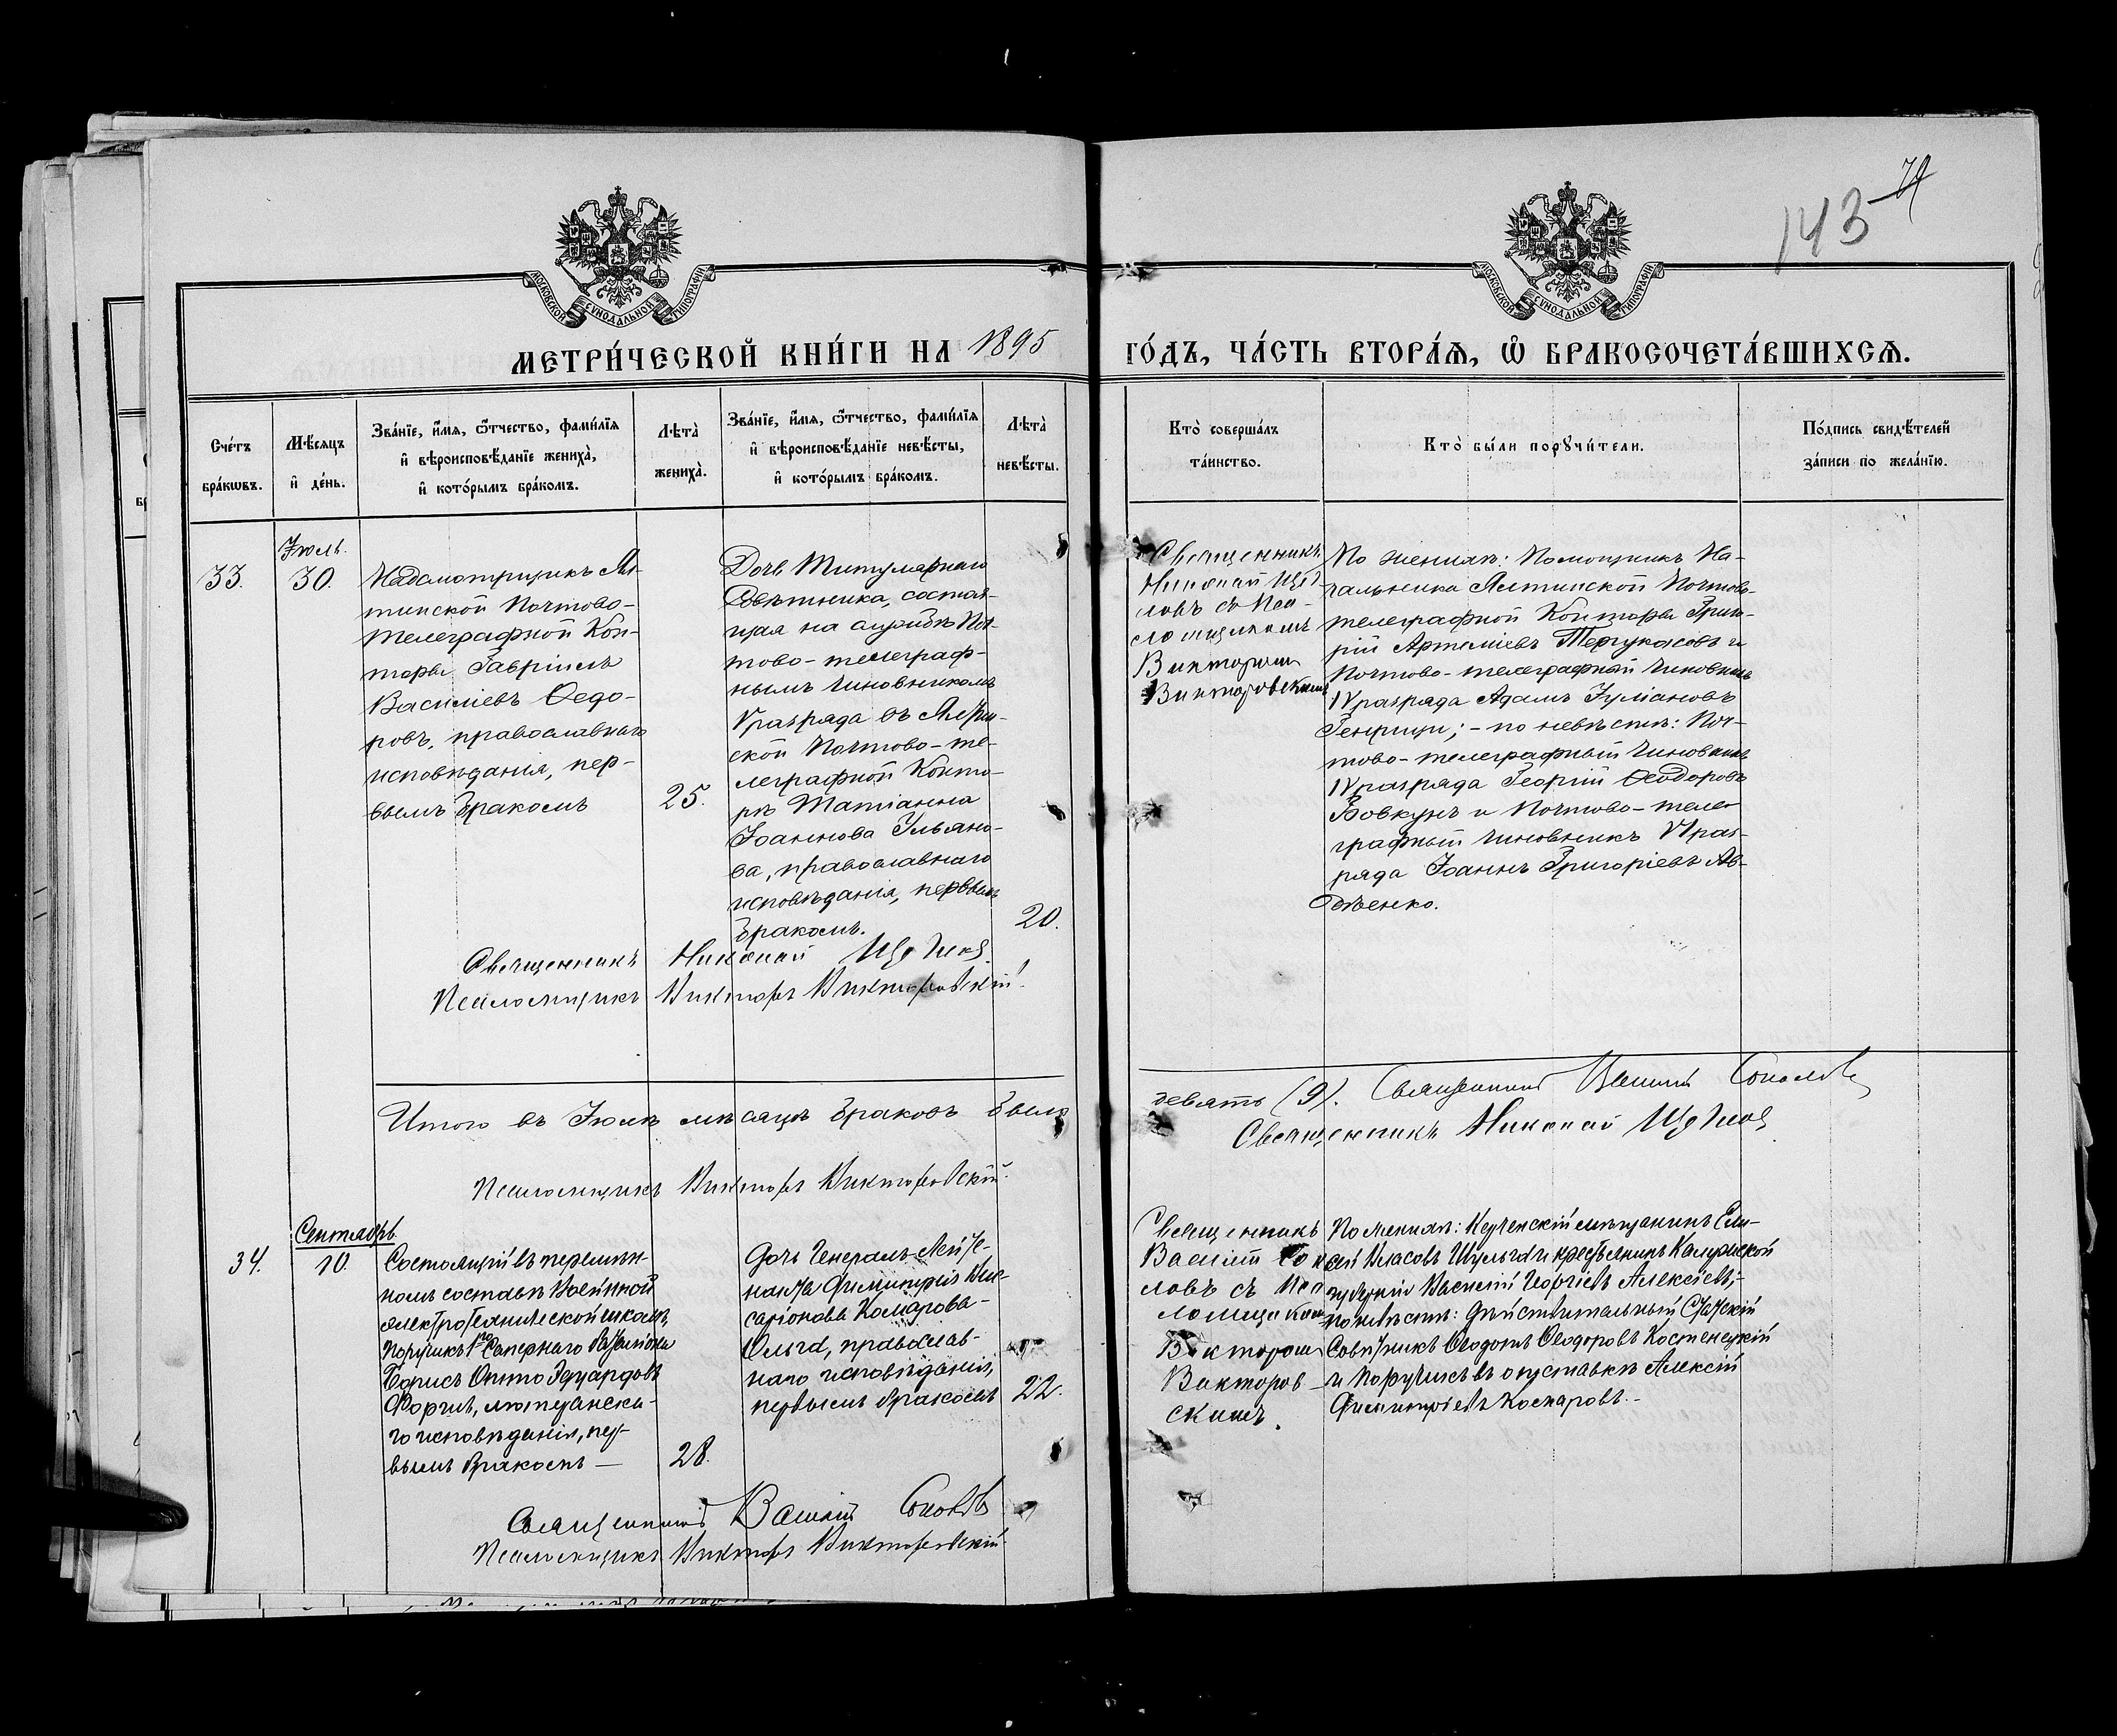 143
МОСКОВСКОЙ СѴНОДАЛЬНОЙ ТИПОГРАФІИ.
МОСКОВСКОЙ СѴНОДАЛЬНОЙ ТИПОГРАФІИ.
МЕТРИ́ЧЕСКОЙ КНИ́ГИ НА 1895 ГО́ДЪ, ЧА́СТЬ ВТОРА́Я, Ѡ҆ БРАКОСОЧЕТА́ВШИХСЯ.
Сче́тъ
бра́кѡвъ.
Мѣ́сяцъ
и҆ де́нь.
Зва́нїе, и҆́мя, ѻ҆́тчество, фами́лїя
и҆ вѣроисповѣ́данїе жениха̀,
и҆ кото́рымъ бра́комъ.
Лѣта̀
жениха̀.
Зва́нїе, и҆́мя, ѻ҆́тчество, фами́лїя
и҆ вѣроисповѣ́данїе невѣ́сты,
и҆ кото́рымъ бра́комъ.
Лѣта̀
невѣ́сты.
Кто̀ соверша́лъ
та́инство.
Кто̀ бы́ли порꙋчи́тели.
По́дпись свидѣ́телей
за́писи по жела́нїю.
33.
Іюль.
30.
Надсмотрщикъ Ял-
тинской Почтово-
телеграфной Кон-
торы Гавріилъ
Василіевъ Ѳедо-
ровъ, православнаго
исповѣданія, пер-
вымъ бракомъ
25.
Дочь Титулярнаго
Совѣтника, состоя-
щая на службѣ Поч-
тово-телеграф-
нымъ чиновникомъ
V разряда въ Ялтин-
ской Почтово-те-
леграфной Конто-
рѣ Татіанна
Іоаннова Ульяно-
ва, православнаго
исповѣданія, первымъ
бракомъ.
20.
Священникъ
Николай Щег-
ловъ съ Пса-
ломщикомъ
Викторомъ
Викторовскимъ
По женихѣ: Помощникъ На-
чальника Ялтинской Почтово-
телеграфной Конторы Григо-
рій Артеміевъ Тергукасовъ и
Почтово-телеграфный чиновникъ
IV разряда Адамъ Іуліановъ
Генрици; - по невѣстѣ: Поч-
тово-телеграфный чиновникъ
IV разряда Георгій Ѳеодоровъ
Бовкунъ и Почтово-теле-
графный чиновникъ VI раз-
ряда Іоаннъ Григоріевъ Ав-
дѣенко.
Священникъ Николай Щегловъ
Псаломщикъ Викторъ Викторовскій.
Итого въ Іюлѣ мѣсяцѣ браковъ было девять (9). Священникъ Василій Соколовъ
Священникъ Николай Щегловъ
Псаломщикъ Викторъ Викторовскій.
34.
Сентябрь
10.
Состоящій въ перемѣн-
номъ составѣ Военной
электротехнической школы,
поручикъ Сапернаго баталіона
Борисъ Отто Эдуардовъ
лютеранска-
го исповѣданія, пер-
вымъ бракомъ —
28.
Дочь Генералъ-Лейте-
нанта Димитрія Вис-
саріонова Комарова -
Ольга, православ-
наго исповѣданія,
первымъ бракомъ
22.
Священникъ
Василій Соко
ловъ съ Пса
ломщикомъ
Викторомъ
Викторов-
скимъ.
По женихѣ: мѣщанинъ Ели-
сей Власовъ Шульга и крестьянинъ Калужской
губерніи Василій Георгіевъ Алексѣевъ; -
по невѣстѣ: Дѣйствительный Статскій
Совѣтникъ Ѳеодотъ Ѳеодоровъ Костенецкій
и поручикъ въ отставкѣ Алексій
Димитріевъ Комаровъ. -
Священникъ Василій Соколовъ
Псаломщикъ Викторъ Викторовскій